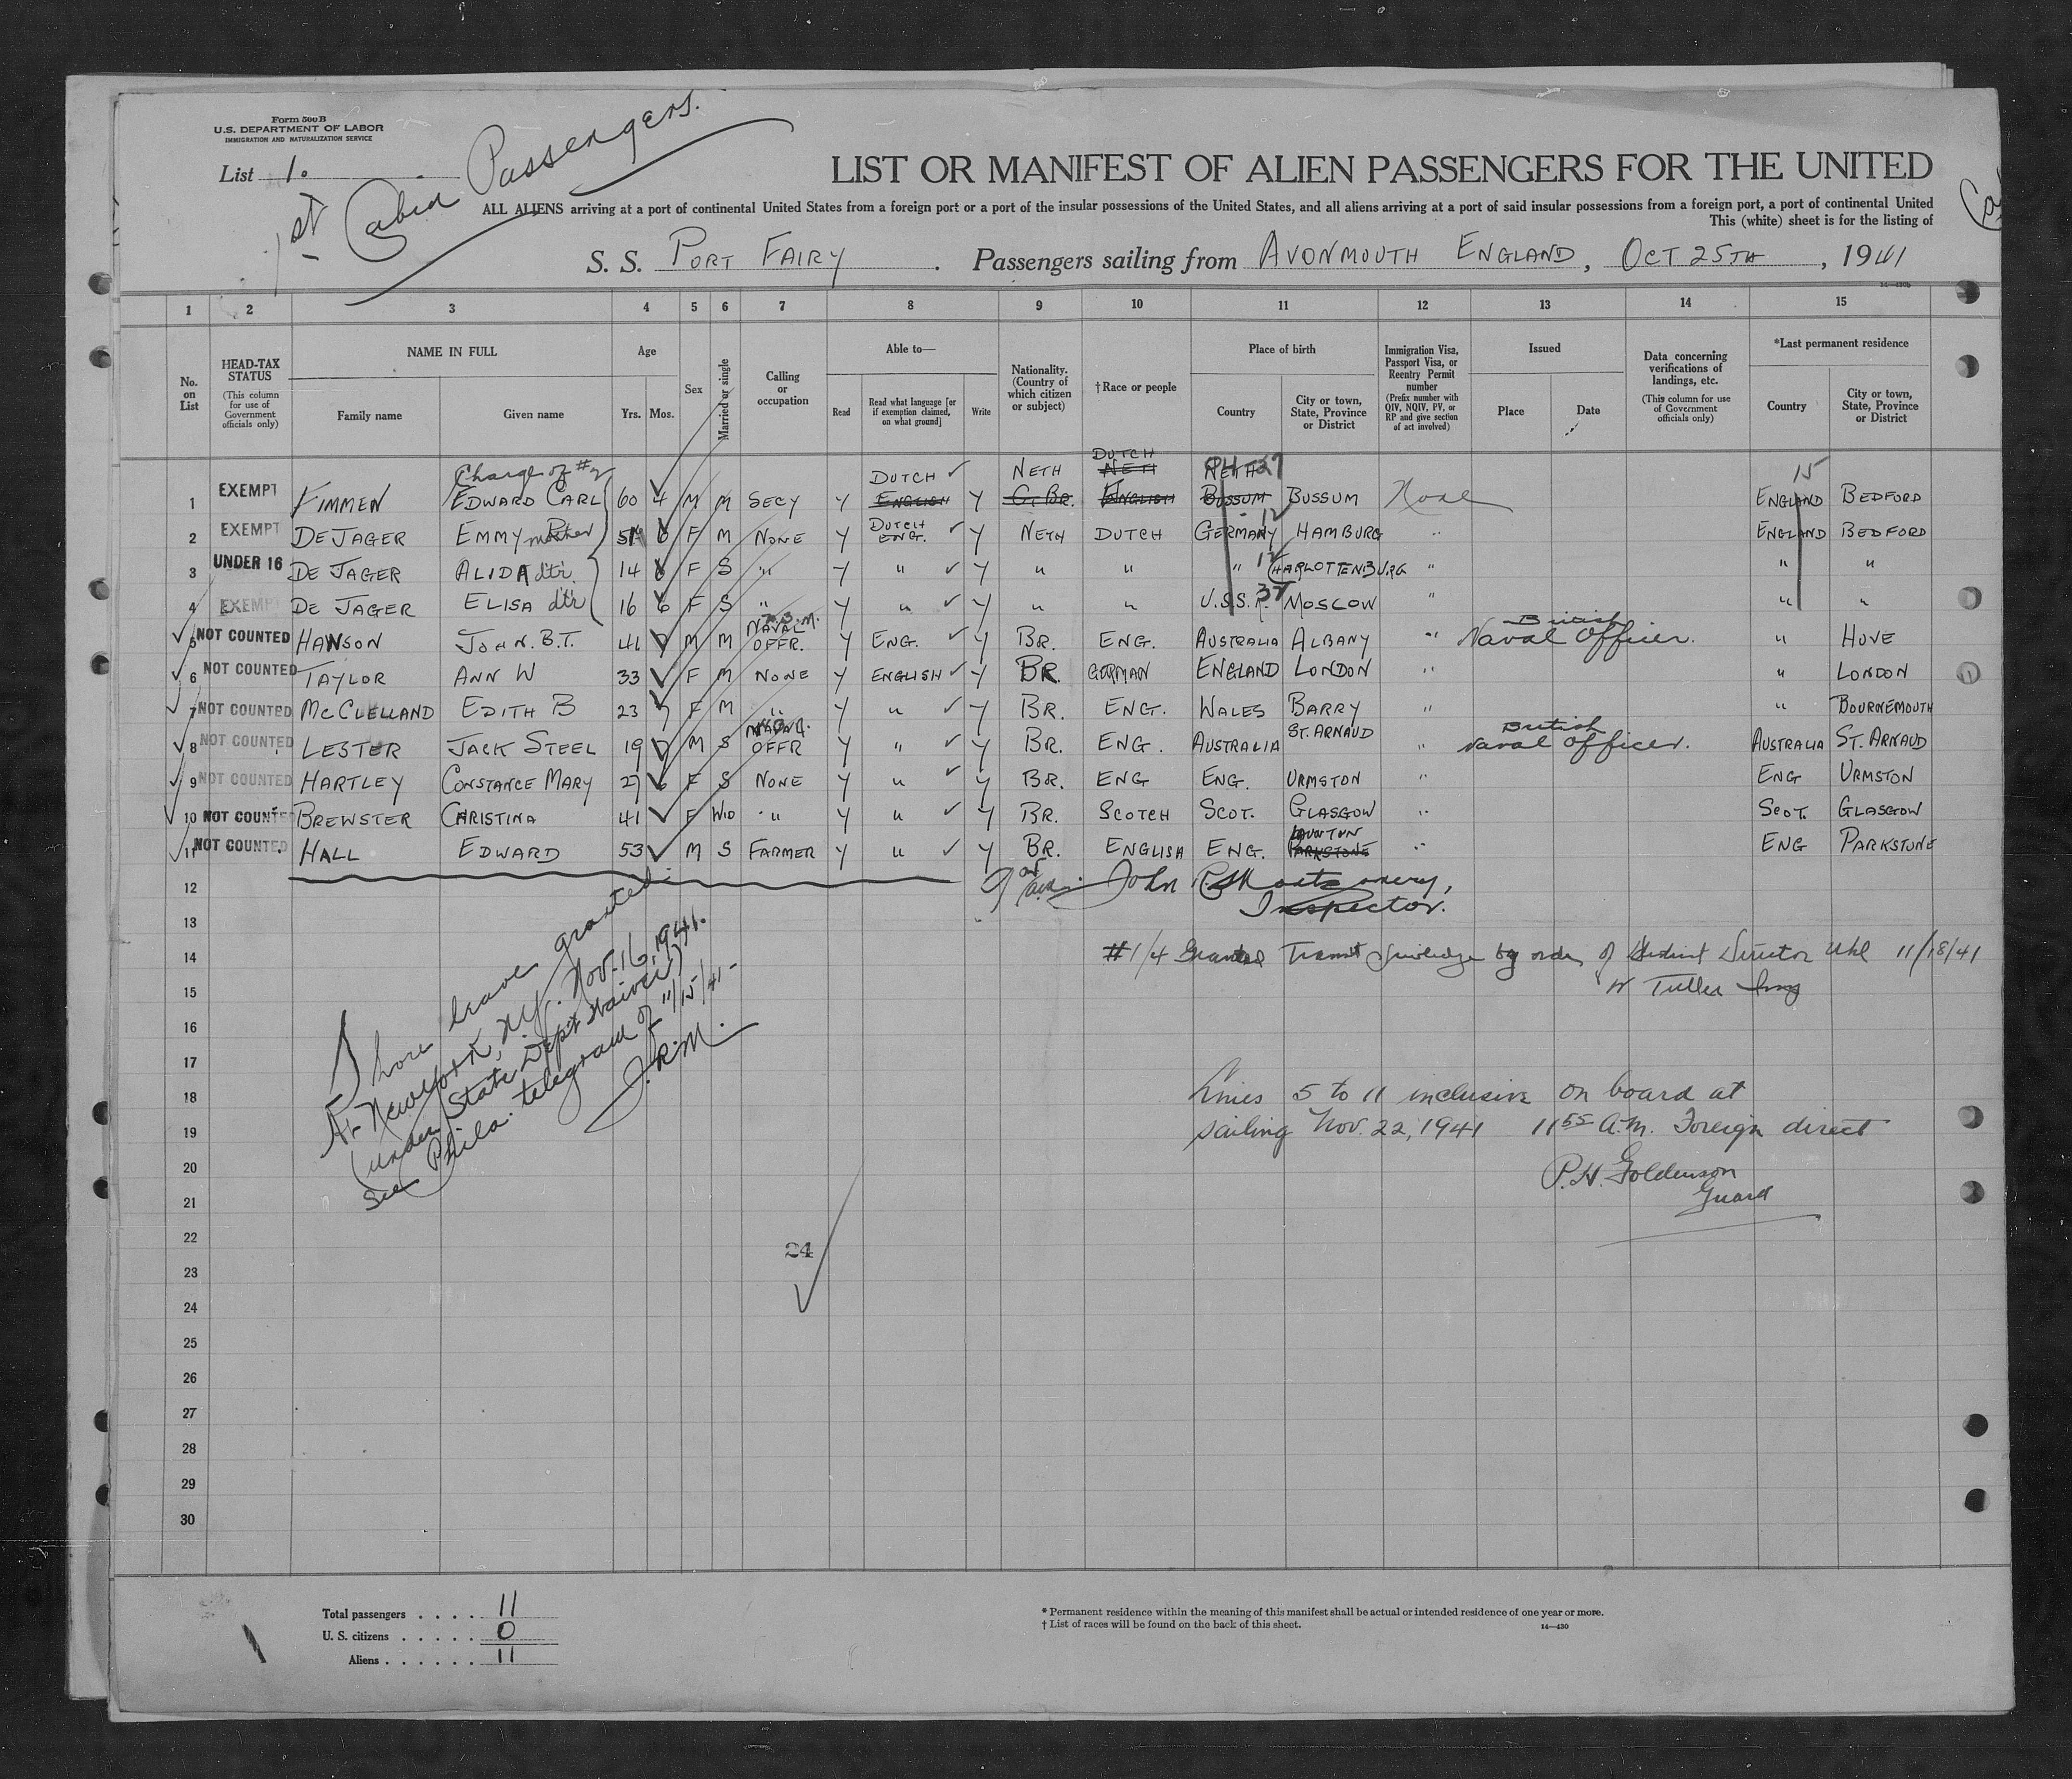 Form 500B
U.S. DEPARTMENT OF LABOR
IMMIGRATION AND NATURALIZATION SERVICE
List 1.
1st Cabin Passengers.
LIST OR MANIFEST OF ALIEN PASSENGERS FOR THE UNITED
ALL ALIENS arriving at a port of continental United States from a foreign port or a port of the insular possessions of the United States, and all aliens arriving at a port of said insular possessions from a foreign port, a port of continental United
This (white) sheet is for the listing of
S. S. PORT FAIRY . Passengers sailing from AVONMOUTH ENGLAND, OCT 25TH, 1941
1 2 3 4 5 6 7 8 9 10 11 12 13 14 15
No. on List
HEAD-TAX STATUS (This column for use of Government officials only)
NAME IN FULL Family name Given name
Age Yrs. Mos.
Sex
Married or single
Calling or occupation
Able to— Read Read what language [or if exemption claimed, on what ground] Write
Nationality. (Country of which citizen or subject)
†Race or people
Place of birth Country City or town, State, Province or District
Immigration Visa, Passport Visa, or Reentry Permit number (Prefix number with QIV, NQIV, PV, or RP and give section of act involved)
Issued Place Date
Data concerning verifications of landings, etc. (This column for use of Government officials only)
*Last permanent residence Country City or town, State, Province or District
Charge of #2 DUTCH NETH DUTCH NETH NETH 27 15
1 EXEMPT FIMMEN EDWARD CARL 60 4 M M SECY Y ENGLISH Y G. BR. ENGLISH BUSSUM BUSSUM None ENGLAND BEDFORD
2 EXEMPT DE JAGER EMMY mother 51 6 F M NONE Y DUTCH ENG. Y NETH DUTCH GERMANY 12 HAMBURG " ENGLAND BEDFORD
3 UNDER 16 DE JAGER ALIDA dtr. 14 6 F S " Y " Y " " " 12 CHARLOTTENBURG " " "
4 EXEMPT DE JAGER ELISA dtr 16 6 F S " Y " Y " " U.S.S.R. 37 MOSCOW " " "
5 NOT COUNTED HANSON JOHN. B.T. 41 7 M M NAVAL OFFR. Y ENG. Y BR. ENG. AUSTRALIA ALBANY " British Naval Officer. " HOVE
6 NOT COUNTED TAYLOR ANN W 33 F M NONE Y ENGLISH Y BR. GERMAN ENGLAND LONDON " " LONDON
7 NOT COUNTED MCCLELLAND EDITH B 23 7 F M " Y " Y BR. ENG. WALES BARRY " " BOURNEMOUTH
8 NOT COUNTED LESTER JACK STEEL 19 7 M S NAVAL OFFR Y " Y BR. ENG. AUSTRALIA ST. ARNAUD " British Naval Officer. AUSTRALIA ST. ARNAUD
9 NOT COUNTED HARTLEY CONSTANCE MARY 27 6 F S NONE Y " Y BR. ENG ENG. URMSTON " ENG URMSTON
10 NOT COUNTED BREWSTER CHRISTINA 41 F WID " Y " Y BR. SCOTCH SCOT. GLASGOW " SCOT. GLASGOW
11 NOT COUNTED HALL EDWARD 53 M S FARMER Y " Y BR. ENGLISH ENG. PARKSTONE " ENG PARKSTONE
12 John R. Montgomery,
Inspector.
13
14 #1/4 Granted Transit privilege by order of District Director Uhl 11/18/41
15 W Tuller Insp
16
17
18 Lines 5 to 11 inclusive on board at
19 sailing Nov. 22, 1941 11 55 A.M. Foreign direct
20 P.H. Goldenson
21 Guard
Shore leave granted
At New York, N.Y. Nov. 16, 1941.
(under State Dept Waiver)
See Phila. telegram of 11/15/41-
J.R.M.
22 24
23
24
25
26
27
28
29
30
Total passengers . . . . 11
U. S. citizens . . . . . 0
Aliens . . . . . . 11
* Permanent residence within the meaning of this manifest shall be actual or intended residence of one year or more.
† List of races will be found on the back of this sheet.
14—430